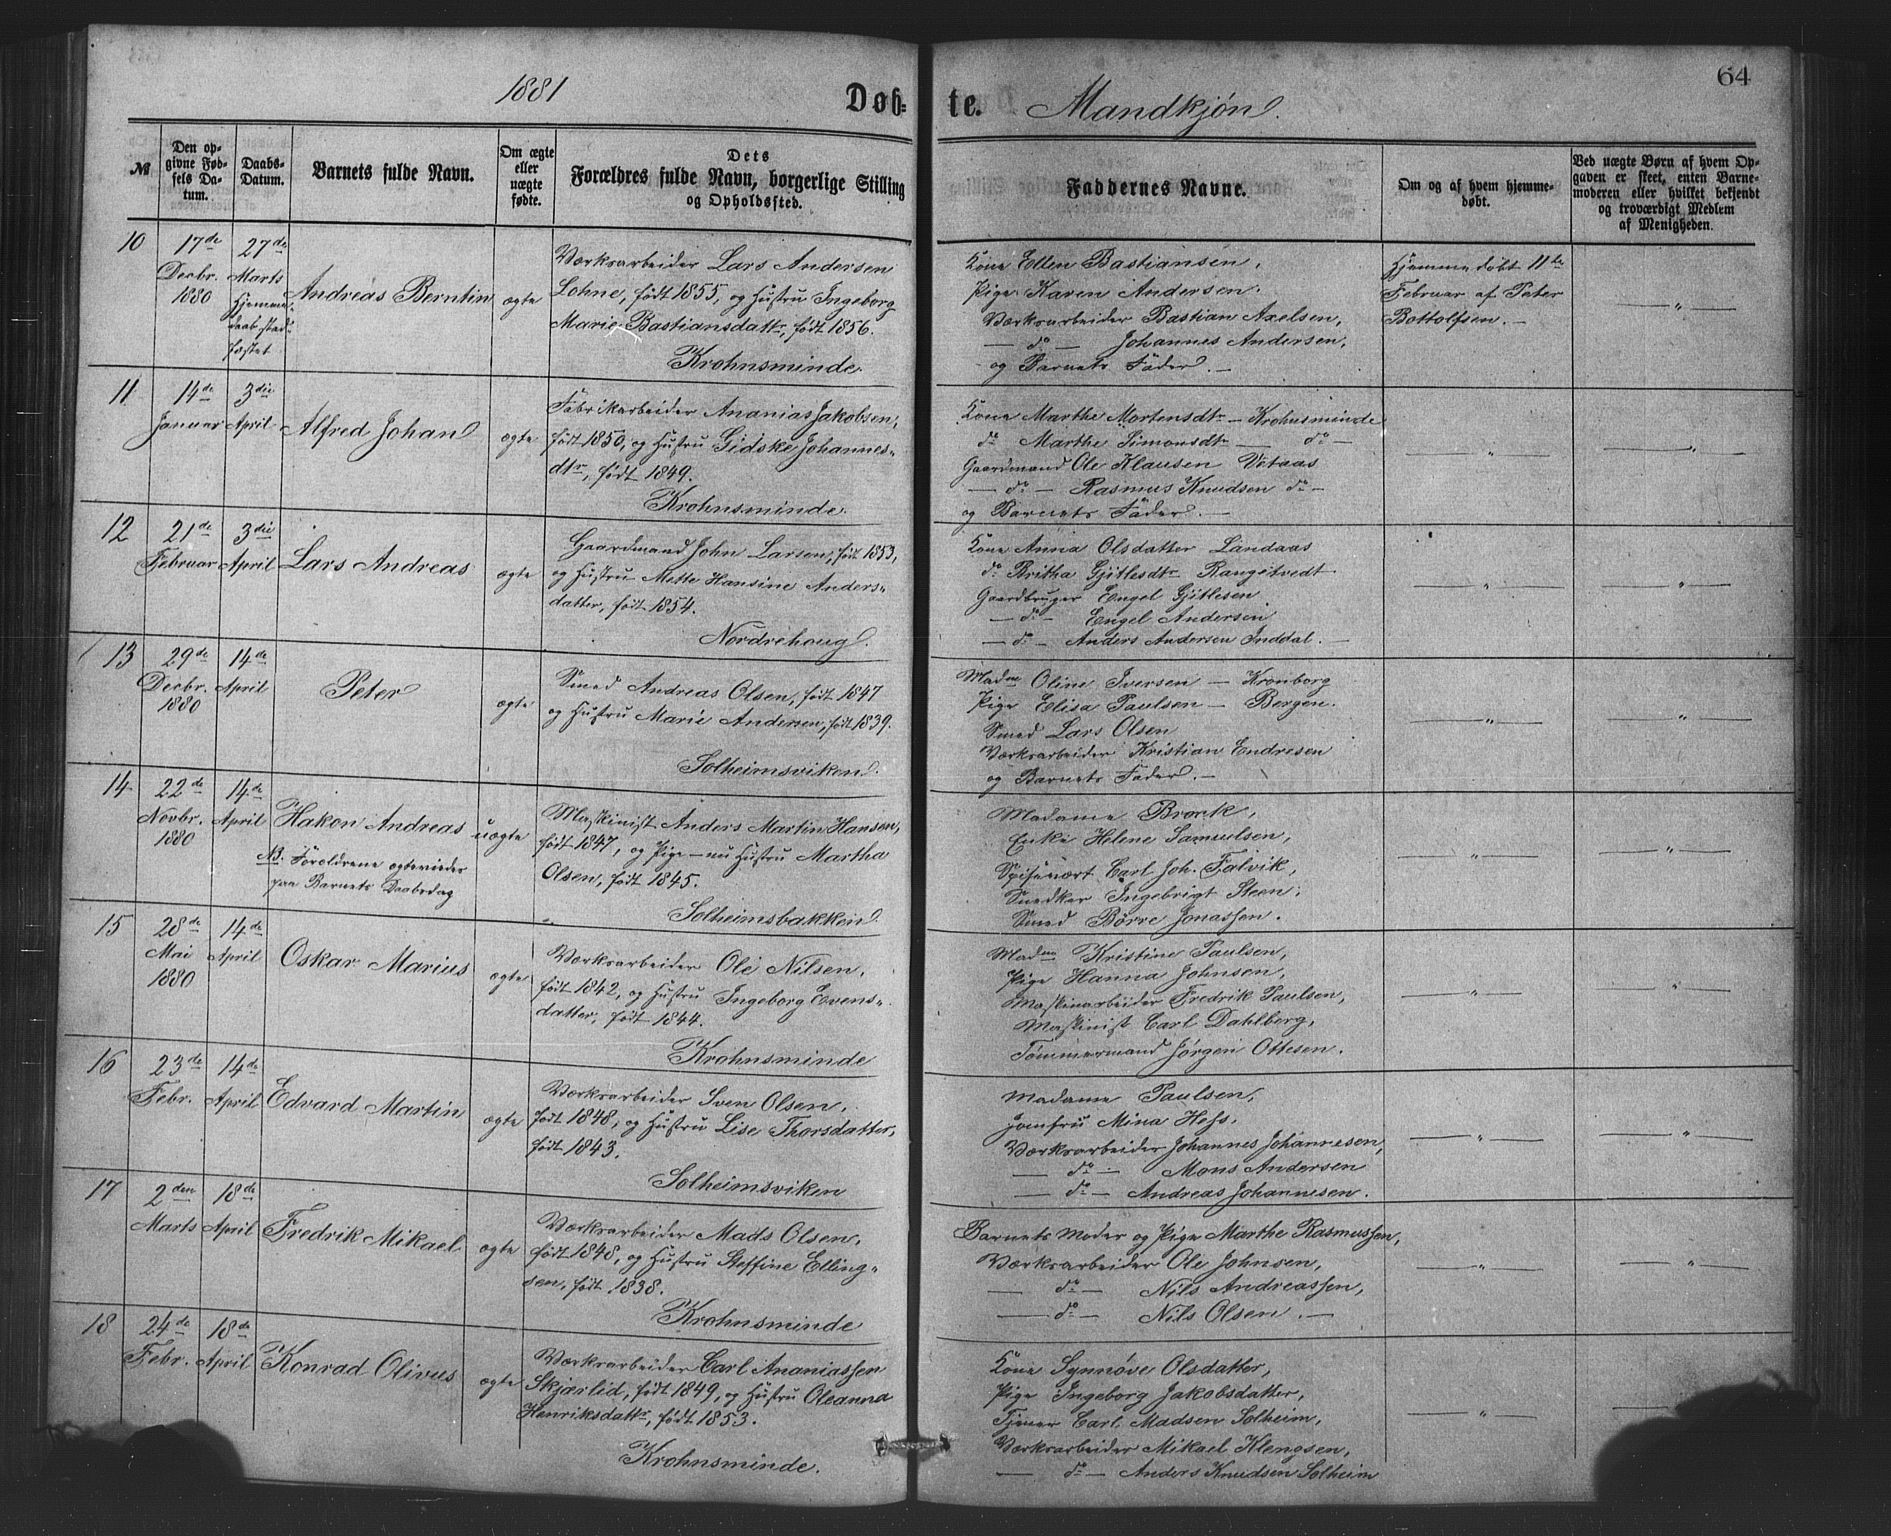 64
1881
Døb- te. Mandkjøn.
№
Den opgivne Fødsels Datum.
Daabs-Datum.
Barnets fulde Navn.
Om ægte eller uægte fødte.
Dets Forældres fulde Navn, borgerlige Stilling og Opholdssted.
Faddernes Navne.
Om og af hvem hjemmedøbt.
Ved uægte Børn af hvem Opgaven er skeet, enten Barnemoderen eller hvilket bekjendt og troværdigt Medlem af Menigheden.
10
17de Decbr. 1880
27de Marts
Hjemmedaab stadfæstet
Andreas Berntin
ægte
Værksarbeider Lars Andersen
Lohne, født 1855, og Hustru Ingeborg
Marie Bastiansdattr, født 1856.
Krohnsminde.
Kone Ellen Bastiansen,
Pige Karen Andersen.
Værksarbeider Bastian Axelsen,
— do — Johannes Andersen,
og Barnets Fader. —
Hjemmedøbt 11te
Februar af Peter
Bottolfsen. —
— " —
11
14de Januar
3die April
Alfred Johan
ægte
Fabrikarbeider Ananias Jakobsen,
født 1850, og Hustru Gidske Johannes-
dtr, født 1849.
Krohnsminde.
Kone Marthe Mortensdtr — Krohnsminde
do Marthe Simonsdtr — do —
Gaardmand Ole Klausen Vetaas
— do — Rasmus Knudsen do —
og Barnets Fader. —
— " —
— " —
12
21de Februar
3die April
Lars Andreas
ægte
Gaardmand John Larsen, født 1853,
og Hustru Mette Hansine Anders-
datter, født 1854.
Nordrehoug.
Kone Anna Olsdatter Landaas
do Britha Gjitlesdtr Rangetvedt
Gaardbruger Engel Gjitlesen
— do — Engel Andersen
— do — Anders Andersen Inddal. —
— " —
— " —
13
29de Decbr. 1880
14de April
Peter
ægte
Smed Andreas Olsen, født 1847
og Hustru Marie Andersen, født 1839.
Solheimsviken.
Madm Oline Iversen — Kronborg
Pige Elisa Paulsen — Bergen.
Smed Lars Olsen
Værksarbeider Kristian Endresen
og Barnets Fader. —
— " —
— " —
14
22de Novbr. 1880
14de April
Hakon Andreas
NB. Forældrene ægteviedes
paa Barnets Daabsdag
uægte
Maskinist Anders Martin Hansen,
født 1847, og Pige — nu Hustru Martha
Olsen, født 1845.
Solheimsbakken.
Madame Brock,
Enke Helene Samuelsen,
Spisevært Carl Joh. Falvik,
Snedker Ingebrigt Steen,
Smed Børre Jonassen.
— " —
— " —
15
28de Mai 1880
14de April
Oskar Marius
ægte
Værksarbeider Ole Nilsen,
født 1842, og Hustru Ingeborg Evens-
datter, født 1844.
Krohnsminde
Madme Kristine Paulsen,
Pige Hanna Johnsen,
Maskinarbeider Fredrik Paulsen,
Maskinist Carl Dahlberg,
Tømmermand Jørgen Ottesen.
— " —
— " —
16
23de Febr.
14de April
Edvard Martin
ægte
Værksarbeider Sven Olsen,
født 1848, og Hustru Lise Thorsdatter,
født 1843.
Solheimsviken
Madame Paulsen,
Jomfru Mina Hess.
Værksarbeider Johannes Johannesen,
— do — Mons Andersen
— do — Andreas Johannesen.
— " —
— " —
17
2den Marts
18de April
Fredrik Mikael
ægte
Værksarbeider Mads Olsen,
født 1848, og Hustru Steffine Elling-
sen, født 1838.
Krohnsminde
Barnets Moder og Pige Marthe Rasmussen,
Værksarbeider Ole Johnsen,
— do — Nils Andreassen,
— do — Nils Olsen. —
— " —
— " —
18
24de Febr.
18de April
Konrad Olivus
ægte
Værksarbeider Carl Ananiassen
Skjærlid, født 1849, og Hustru Oleanna
Henriksdattr, født 1853.
Krohnsminde.
Kone Synnøve Olsdatter,
Pige Ingeborg Jakobsdatter,
Tjener Carl Madsen Solheim,
Værksarbeider Mikael Klengsen,
— do — Anders Knudsen Solheim
— " —
— "